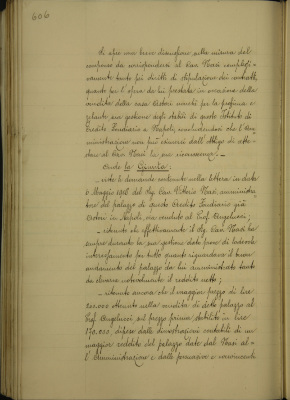 606
Si apre una breve discussione sulla misura del
compenso da corrispondersi al Cav. Nasi complessi=
vamente tanto pei diritti di stipulazione dei contratti,
quanto per l'opera da lui prestata in occasione della
vendita della casa
relante sua gestione degli stabili di quale Istituto di
Credito Fondiario a Napoli, concludendosi che l'Am=
ministrazione non può esimersi dall'obbligo di atte=
stare al Cav. Nasi la sua riconoscenza. —
Onde la Giunta:
vista la domanda contenuta nella lettera in data
6 Maggio 1918 del Sig. Cav. Vittorio Nasi, amministra=
tore del palazzo di questo Credito Fondiario già
in Napoli, ora venduto al Prof. Angelucci;
— ritenuto che effettivamente il Sig. Cav. Nasi ha
sempre durante la sua gestione dato prove di lodevole
interessamento per tutto quanto riguardava il buon
andamento del palazzo da lui amministrato tanto
da elevarne notevolmente il reddito netto;
— ritenuto ancora che il maggior prezzo di lire
200.000 ottenuto nella vendita di detto palazzo al
Prof. Angelucci sul prezzo prima stabilito in lire
170.000, dipese dalle dimostrazioni contabili di un
maggior reddito del palazzo date dal Nasi al=
l'Amministrazione e dalle persuasive e convincenti